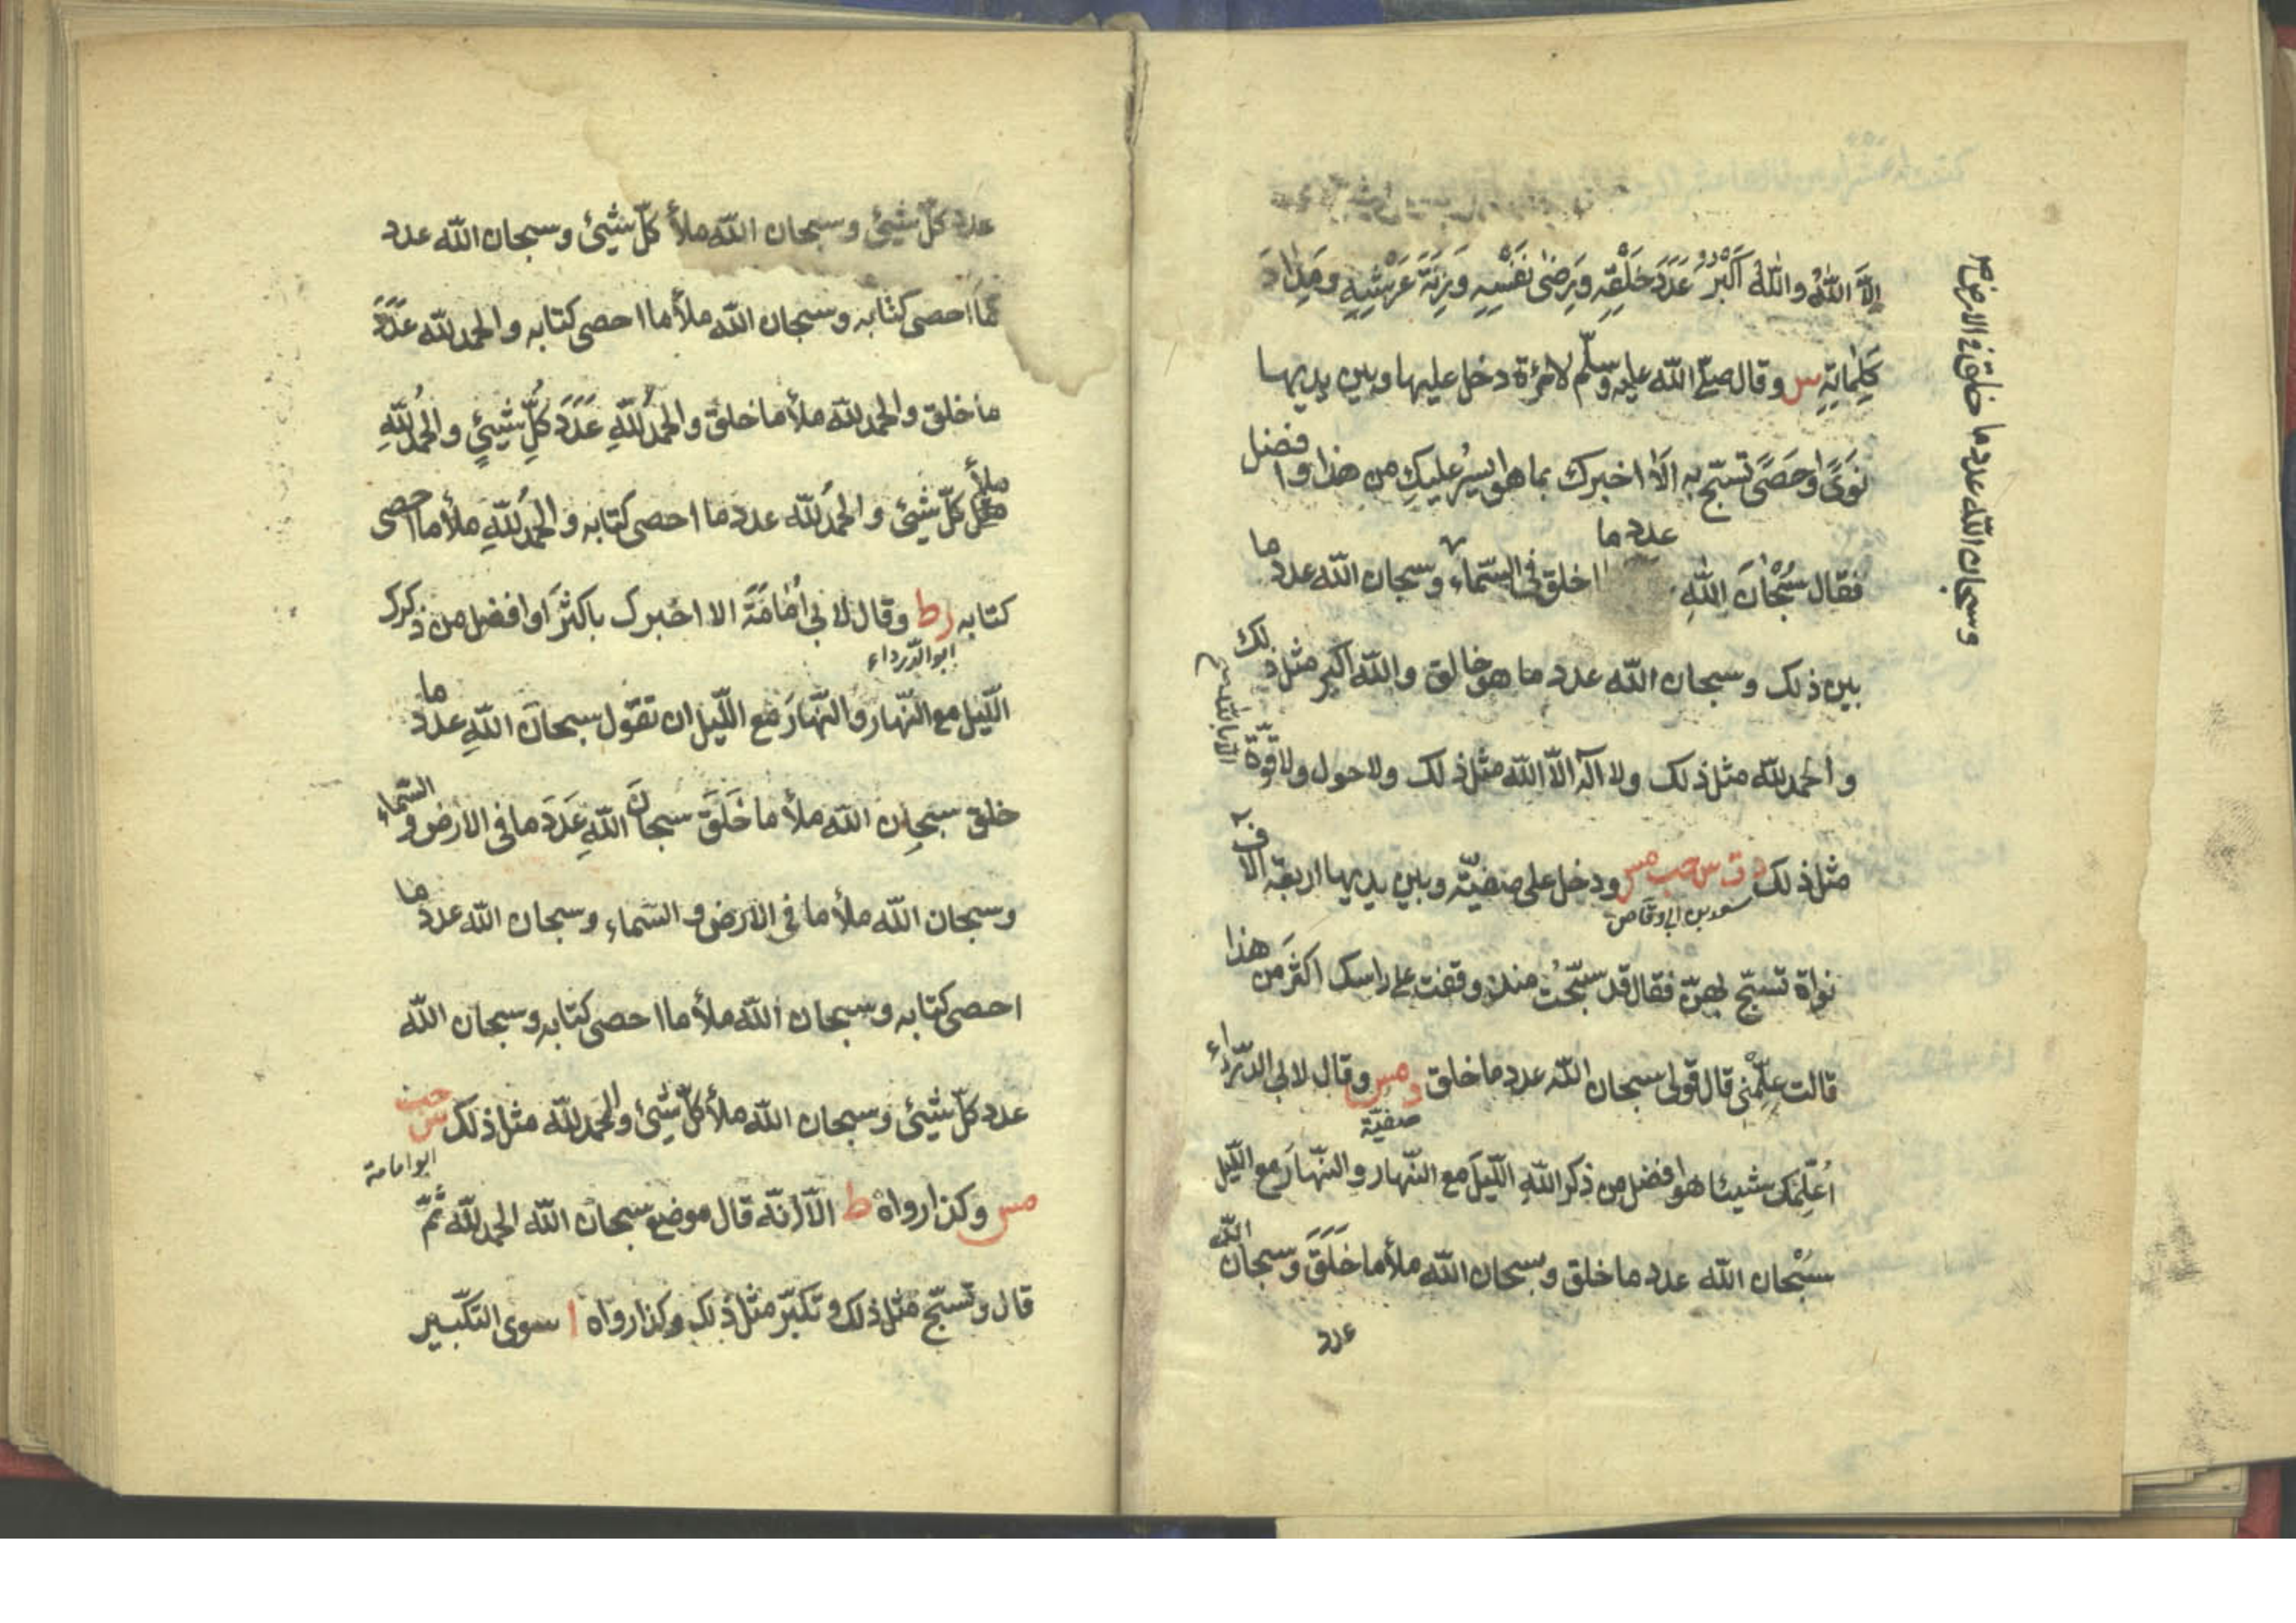 إلّا اللّٰه واللّٰه اَكْبَرُ عَدَدَ خَلْقِهِ وَرِضٰى نَفْسِهِ وَزِنَةَ عَرْشِهِ وَمِدَادَ
كَلِمَاتِهِ س وقال صلّى اللّٰه عليه وسلّم لامرءة دخل عليها وبين يديها
نَوًى او حَصًى تسبّح به اَلَا اخبرك بما هو ايسرُ عليكِ من هذا وافضل
فقال سُبْحَانَ اللّٰهِ عدد ما خلق في السّماء وسبحان اللّٰه عدد ما
وسبحان اللّٰه عدد ما خلق في الارض
بين ذلك وسبحان اللّٰه عدد ما هو خالق واللّٰه اكبر مثل ذلك
والحمد للّٰه مثل ذلك ولا آله الّا اللّٰه مثل ذلك ولا حول ولا قوّة
الّا باللّٰه
مثل ذلك د ت س حب مس ودخل على صفيّة وبين يديها اربعة آلاف
سعد بن ابى وقّاص
نواة تسبّح بهنّ فقال قد سبّحتُ منذ وقفت على راسك اكثَر من هذا
قالت علِّمْنى قال قولى سبحان اللّٰه عدد ما خلق د مس وقال لابى الدّرداء
صفيّة
اُعَلِّمُك شيئا هو افضل من ذكر اللّٰهِ اللّيلَ مع النّهار والنّهارَ مع اللّيل
سُبْحان اللّٰه عدد ما خلق وسبحان اللّٰه ملأ ما خَلَقَ وسبحان اللّٰه
عدد
عدد كلّ شيئ وسبحان اللّٰه ملأ كلّ شيئ وسبحان اللّٰه عدد
مَا احصى كتابه وسبحان اللّٰه ملأ ما احصى كتابه والحمد للّٰه عَدَدَ
ما خلق والحمد للّٰه ملأ ما خلق والحمدُ للّٰهِ عَدَدَ كُلِّ شيئٍ والحمدُ للّٰهِ
ملأ كلّ شيئ والحمدُ للّٰه عدد ما احصى كتابه والحمدُ للّٰهِ ملأ ما احصى
كتابه ر ط وقال لابى اُمَامَةَ الا اخبرك باكثَرَ او افضل من ذكرك
ابو الدّرداء
اللّيل مع النّهار والنّهارَ مع اللّيل ان تقول سبحان اللّٰهِ عدد ما
خلق سبحان اللّٰه ملأ ما خَلَقَ سبحانَ اللّٰهِ عَدَدَ ما في الارض والسّماء
وسبحان اللّٰه ملأ ما في الارض و السّماء وسبحان اللّٰه عدد ما
احصى كتابه وسبحان اللّٰه ملأ ما احصى كتابه وسبحان اللّٰه
عدد كلّ شيئ وسبحان اللّٰه ملأ كلّ شيئ والحمد للّٰه مثل ذلك س حب
ابو امامة
مس وكذا رواه ط الّا انّه قال موضع سبحان اللّٰه الحمد للّٰه ثُمّ
قال وتسبّح مثل ذلك وتكبّر مثل ذلك وكذا رواه ا سوى التكبير